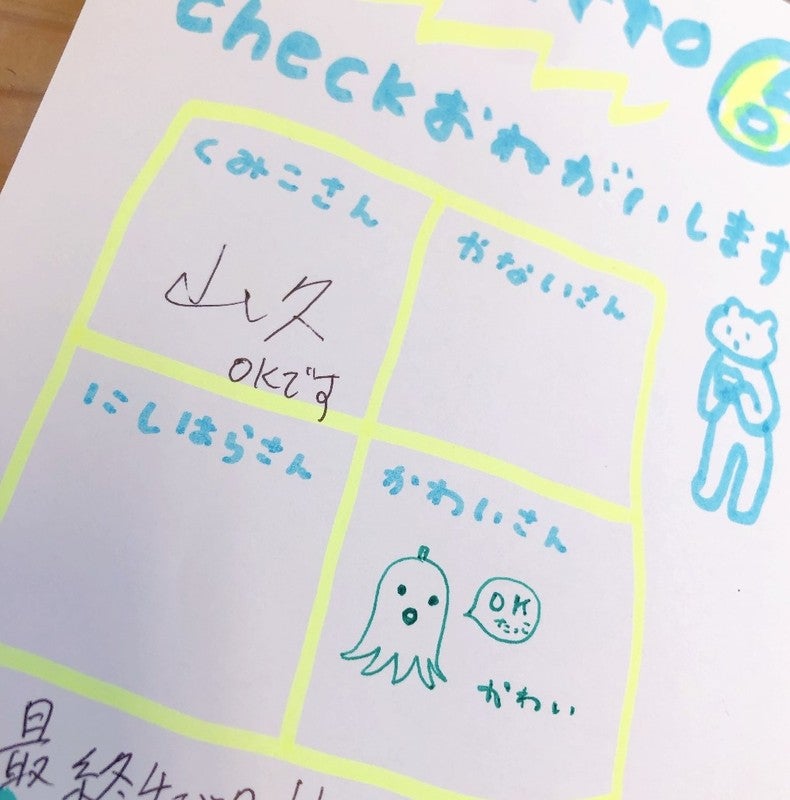 checkおねがいします
くみこさん
山久
OKです
かないさん
にしはらさん
かわいさん
OK
たっこ
かわい
最終チェック